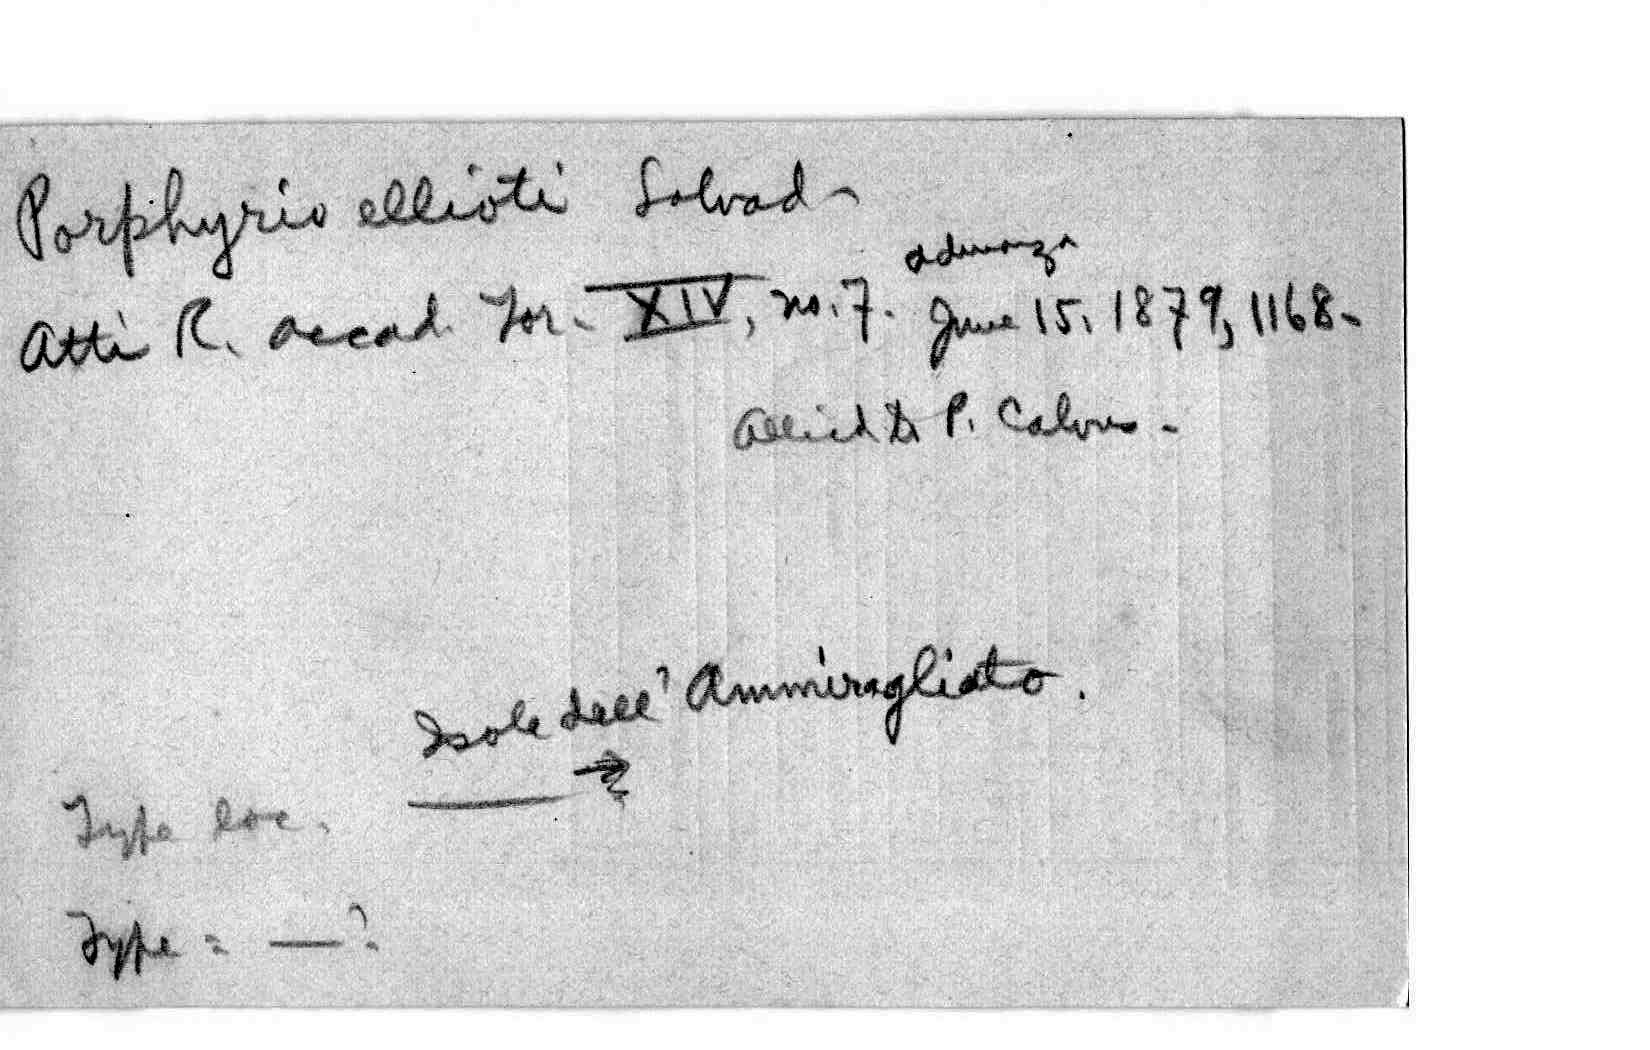 Porphyrio ellioti Salvad.
adunanza
Atti R. accad. Tor. XIV, no. 7. June 15, 1879, 1168.
Allied to P. Calvus.
Isole dell' Ammiragliato.
Type loc.
Type = — ?